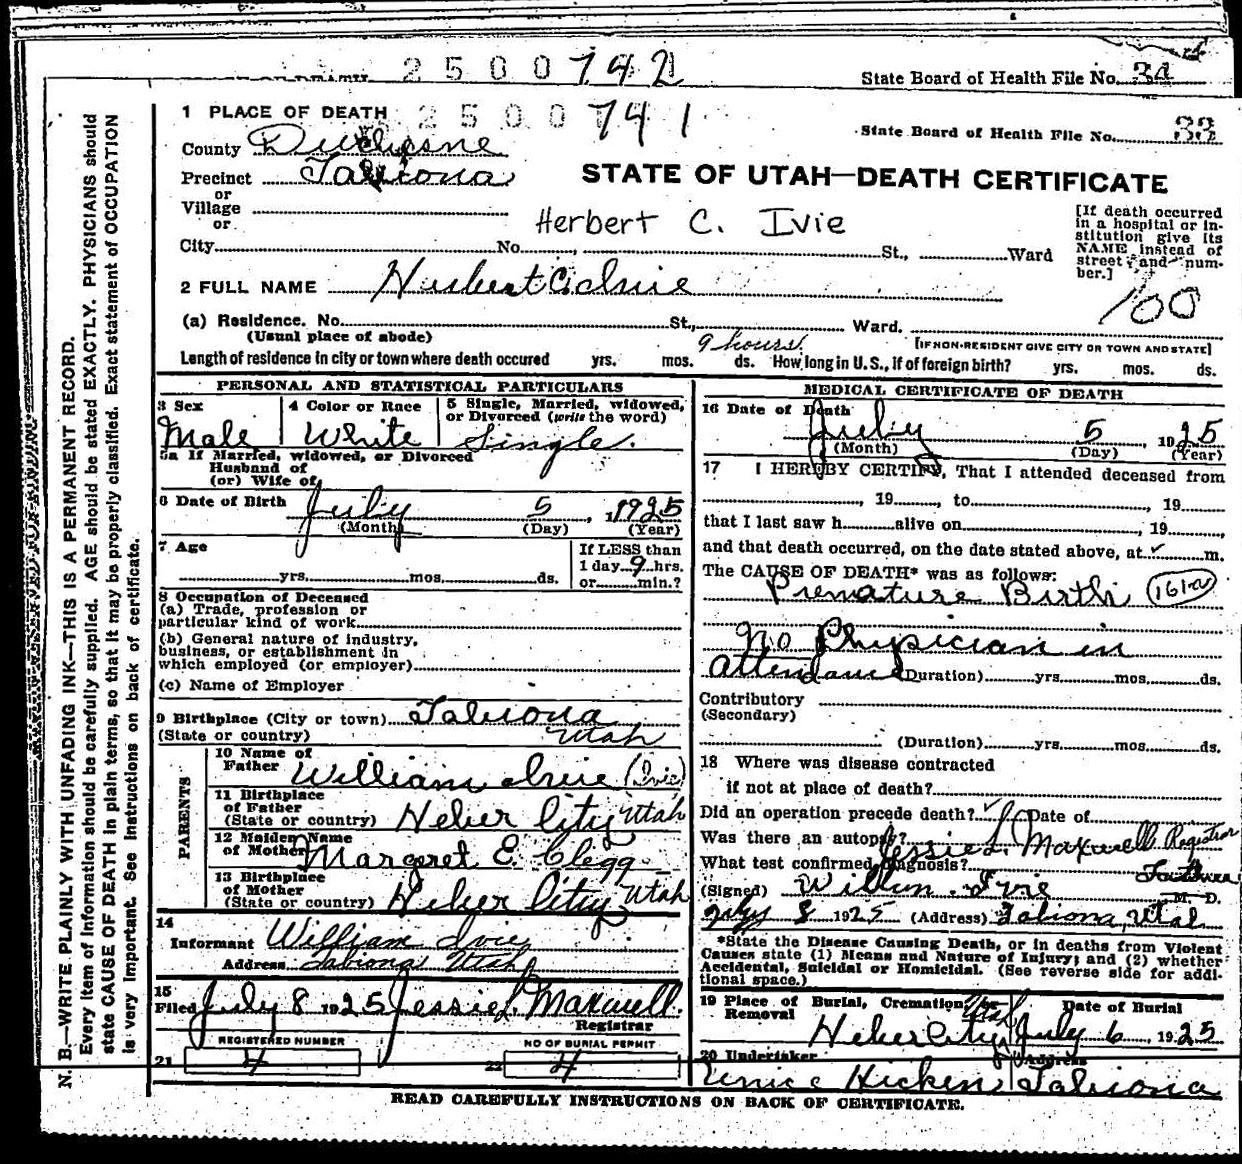 2500742
State Board of Health File No. 34
1 PLACE OF DEATH 2500741
State Board of Health File No. 33
County Duchesne
Precinct Tabiona
STATE OF UTAH—DEATH CERTIFICATE
or
Village
or
Herbert C. Ivie
City No. St., Ward
[If death occurred
in a hospital or in-
stitution give its
NAME instead of
street and num-
ber.]
2 FULL NAME Herbert C. Ivie
100
(a) Residence. No. St., Ward.
(Usual place of abode)
[IF NON-RESIDENT GIVE CITY OR TOWN AND STATE]
9 hours
Length of residence in city or town where death occured yrs. mos. ds. How long in U.S., if of foreign birth? yrs. mos. ds.
PERSONAL AND STATISTICAL PARTICULARS
3 Sex Male
4 Color or Race White
5 Single, Married, widowed,
or Divorced (write the word)
Single.
5a If Married, widowed, or Divorced
Husband of
(or) Wife of
6 Date of Birth July 5, 1925
(Month) (Day) (Year)
7 Age
yrs. mos. ds.
If LESS than
1 day 9 hrs.
or min.?
8 Occupation of Deceased
(a) Trade, profession or
particular kind of work
(b) General nature of industry,
business, or establishment in
which employed (or employer)
(c) Name of Employer
9 Birthplace (City or town) Tabiona
(State or country) Utah
PARENTS
10 Name of
Father William Ivie (Ivie)
11 Birthplace
of Father
(State or country) Heber City Utah
12 Maiden Name
of Mother Margaret E. Clegg
13 Birthplace
of Mother
(State or country) Heber City Utah
14
Informant William Ivie
Address Tabiona Utah
15
Filed July 8 1925 Jessie L. Maxwell.
Registrar
REGISTERED NUMBER
21 4
NO OF BURIAL PERMIT
22 4
MEDICAL CERTIFICATE OF DEATH
16 Date of Death
July 5, 1925
(Month) (Day) (Year)
17 I HEREBY CERTIFY, That I attended deceased from
, 19 , to , 19
that I last saw h alive on , 19 ,
and that death occurred, on the date stated above, at m.
The CAUSE OF DEATH* was as follows:
Premature Birth 161a
No Physician in
attendance (Duration) yrs. mos. ds.
Contributory
(Secondary)
(Duration) yrs. mos. ds.
18 Where was disease contracted
if not at place of death?
Did an operation precede death? Date of
Was there an autopsy? Jessie L. Maxwell Registrar
What test confirmed diagnosis?
(Signed) Ivie M. D.
July 8 1925 (Address) Tabiona, Utah
*State the Disease Causing Death, or in deaths from Violent
Causes state (1) Means and Nature of Injury; and (2) whether
Accidental, Suicidal or Homicidal. (See reverse side for addi-
tional space.)
19 Place of Burial, Cremation,
Removal
Heber City Utah
Date of Burial
July 6, 1925
20 Undertaker
Hicken
Address
Tabiona
READ CAREFULLY INSTRUCTIONS ON BACK OF CERTIFICATE.
N. B.—WRITE PLAINLY WITH UNFADING INK—THIS IS A PERMANENT RECORD.
Every item of information should be carefully supplied. AGE should be stated EXACTLY. PHYSICIANS should
state CAUSE OF DEATH in plain terms, so that it may be properly classified. Exact statement of OCCUPATION
is very important. See instructions on back of certificate.